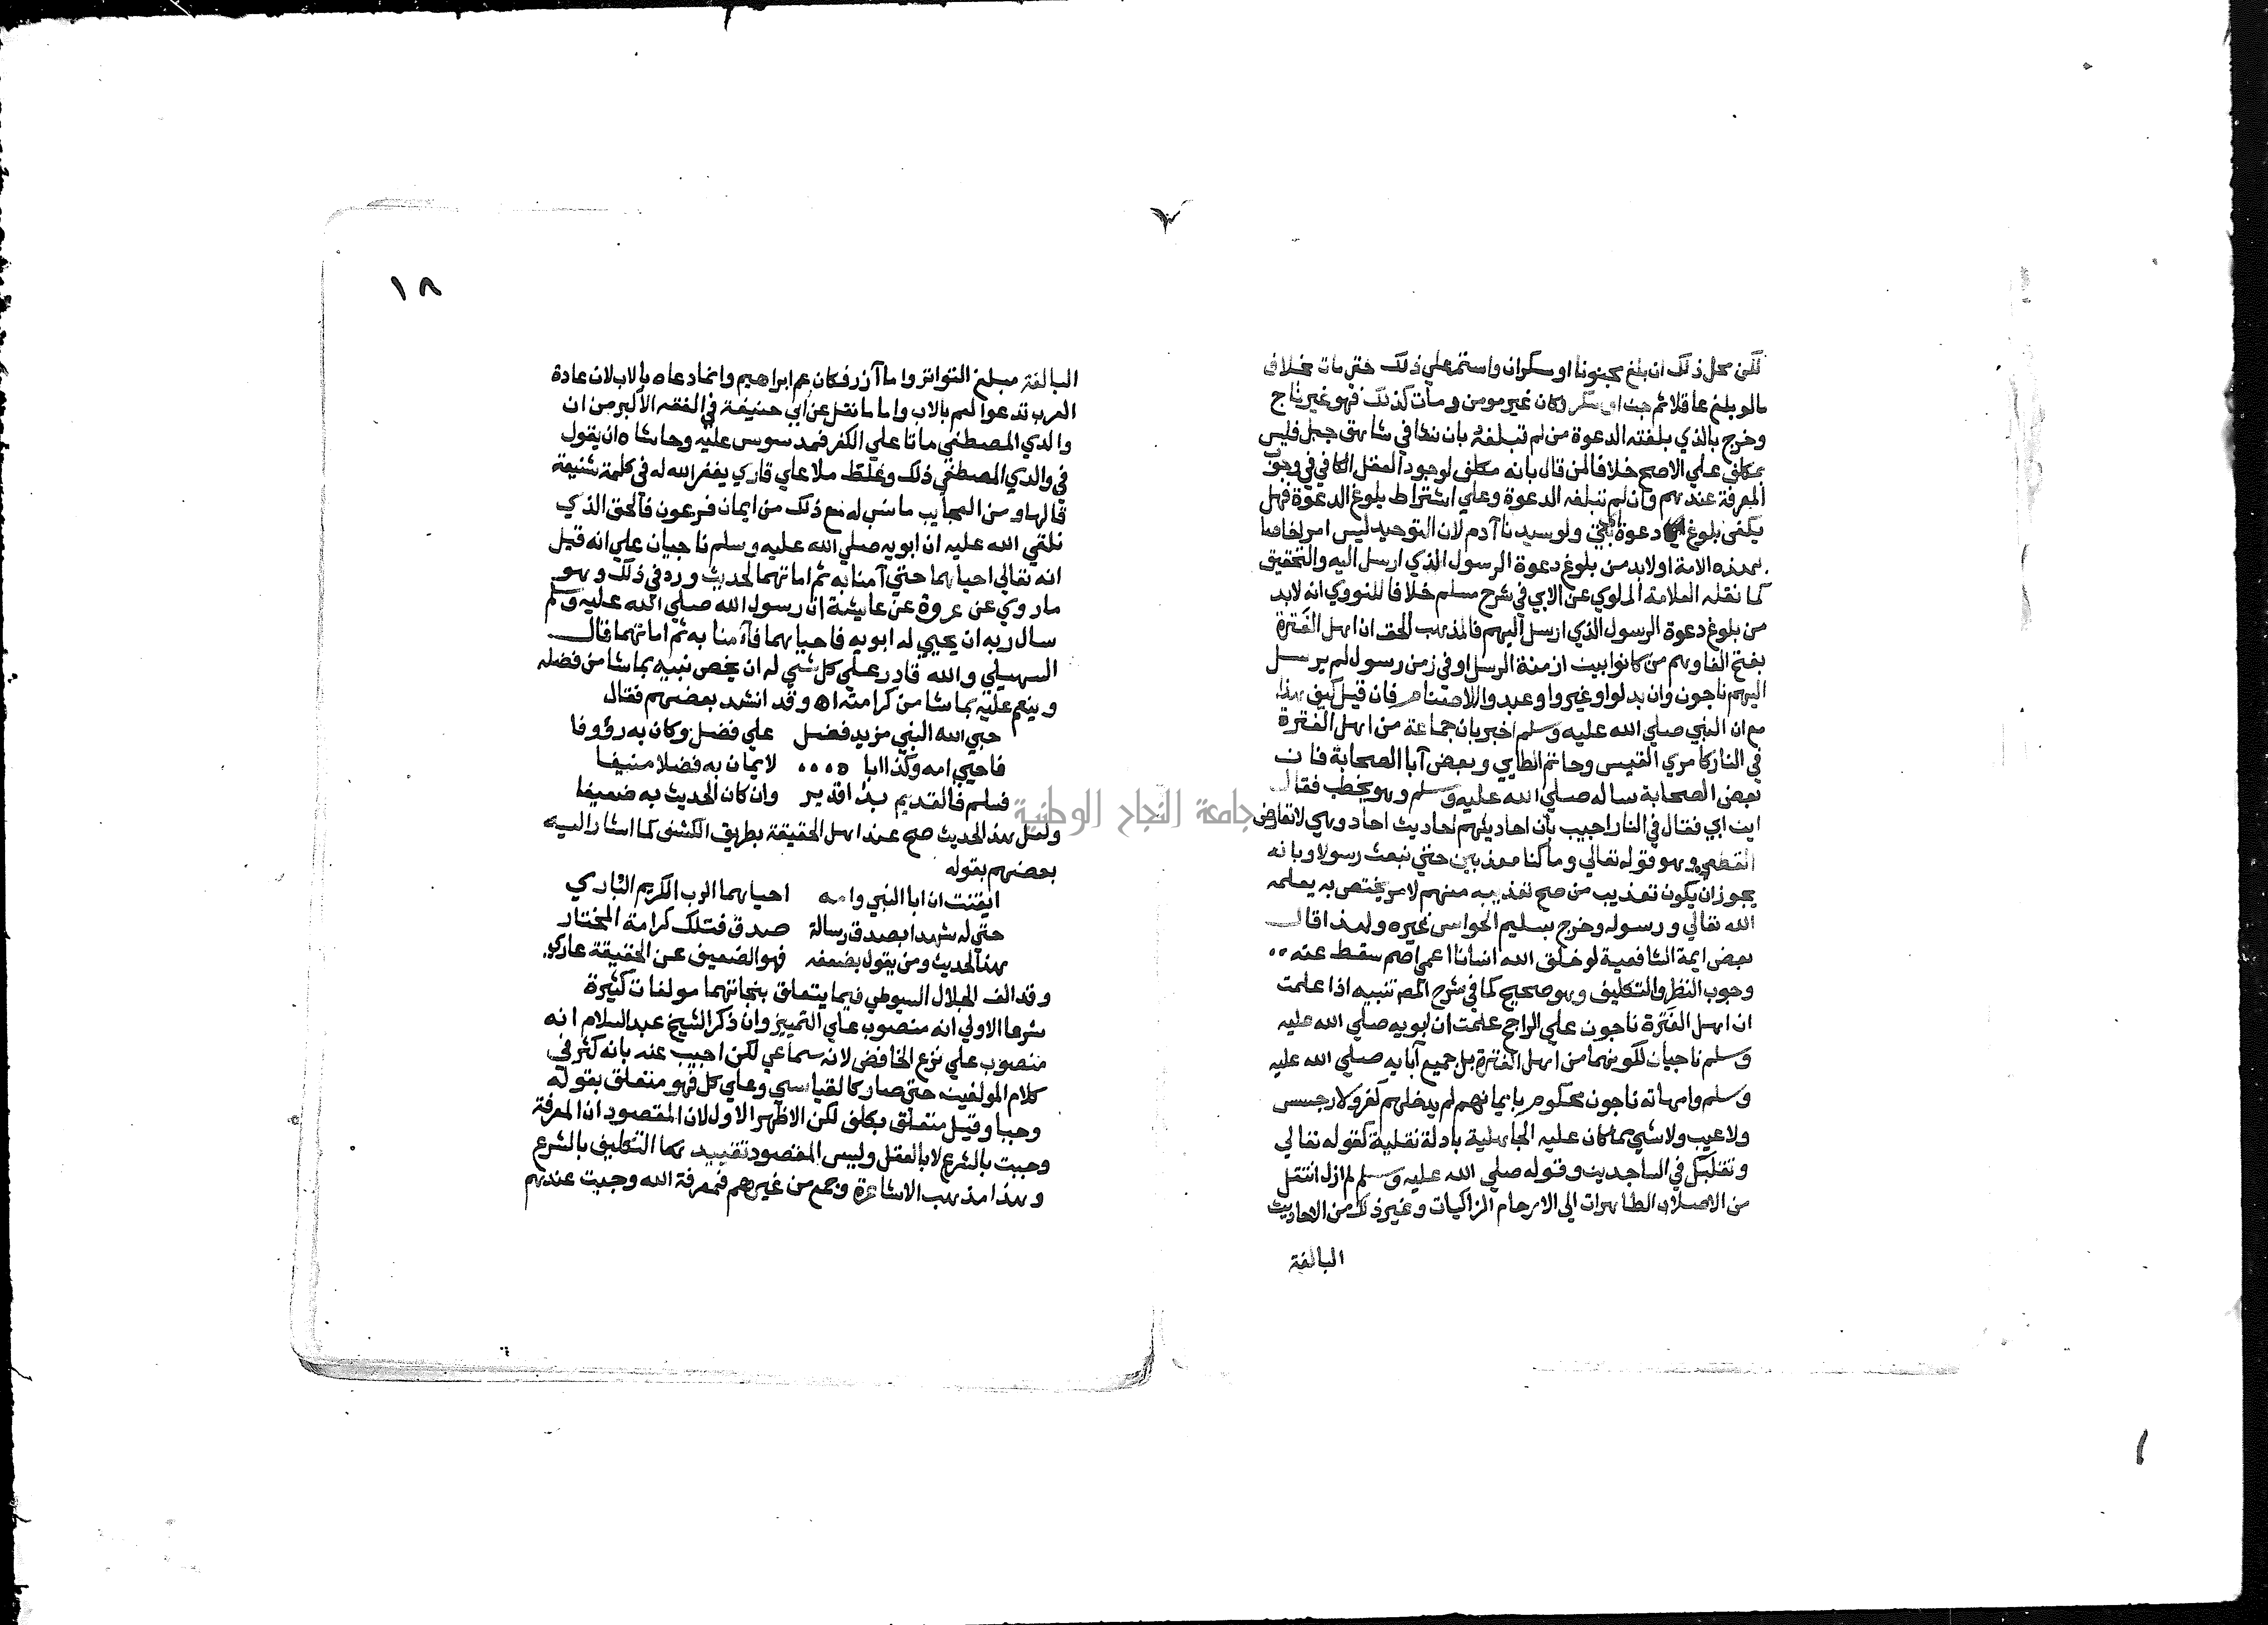 لكن محل ذلك ان بلغ مجنونا او سكران واستمر علي ذلك حتي مات بخلاف
ما لو بلغ عاقلا ثم جن او سكر وكان غير مومن ومات كذلك فهو غير ناج
وخرج بالذي بلغته الدعوة من لم تبلغه بان نشا في شاهق جبل فليس
بمكلف علي الاصح خلافا لمن قال بانه مكلف لوجود العقل الكافي في وجوب
المعرفة عندهم وان لم تبلغه الدعوة وعلي اشتراط بلوغ الدعوة فهل
يكفي بلوغ دعوة نبي ولو سيدنا آدم لان التوحيد ليس امر لخاصا
بهذه الامة او لابد من بلوغ دعوة الرسول الذي ارسل اليه والتحقيق
كما نقله العلامة الملوي عن الابي في شرح مسلم خلافا للنووي انه لابد
من بلوغ دعوة الرسول الذي ارسل اليهم فالمذهب الحق ان اهل الفترة
بفتح الفا وهم من كانوا بين ازمنة الرسل او في زمن رسول لم يرسل
اليهم ناجون وان بدلوا وغيروا وعبدوا الاصنام فان قيل كيف هذا
مع ان النبي صلي الله عليه وسلم اخبر بان جماعة من اهل الفترة
في النار كامري القيس وحاتم الطايي وبعض آبا الصحابة فان
بعض الصحابة ساله صلي الله عليه وسلم وهو يخطب فقال
اين ابي فقال في النار اجيب بان احاديثهم احاديث احاد وهي لا تعارض
القطعي وهو قوله تعالي وما كنا معذبين حتي نبعث رسولا وبانه
يجوز ان يكون تعذيب من صح تعذيبه منهم لامر يختص به يعلمه
الله تعالي ورسوله وخرج بسليم الحواس غيره ولهذا قال
بعض ايمة الشافعية لو خلق الله انسانا اعمي اصم سقط عنه
وجوب النظر والتكليف وهو صحيح كما في شرح المصـ تنبيه اذا علمت
ان اهل الفترة ناجون علي الراجح علمت ان ابويه صلي الله عليه
وسلم ناجيان لكونهما من اهل الفترة بل جميع آبايه صلي الله عليه
وسلم وامهاته ناجون محكوم بايمانهم لم يدخلهم كفر ولا رجس
ولا عيب ولا شي مما كان عليه الجاهلية بادلة نقلية كقوله تعالي
وتقلبك في الساجدين وقوله صلي الله عليه وسلم لم ازل انتقل
من الاصلاب الطاهرات الي الارحام الزاكيات وغير ذلك من الاحاديث
البالغة
١٨
البالغة مبلغ التواتر واما آزر فكان عم ابراهيم وانما دعاه بالاب لان عادة
العرب تدعوا العم بالاب واما ما نقل عن ابي حنيفة في الفقه الاكبر من ان
والدي المصطفي ماتا علي الكفر فمدسوس عليه وحاشاه ان يقول
في والدي المصطفي ذلك وغلط ملا علي قاري يغفر الله له في كلمة شنيعة
قالها ومن العجايب ما نسب له مع ذلك من ايمان فرعون فالحق الذي
نلقي الله عليه ان ابويه صلي الله عليه وسلم ناجيان علي انه قيل
انه تعالي احياهما حتي آمنا به ثم اماتهما لحديث ورد في ذلك وهو
ما روي عن عروة عن عايشة ان رسول الله صلي الله عليه وسلم
سال ربه ان يحيي له ابويه فاحياهما فآمنا به ثم اماتهما قال
السهيلي والله قادر علي كل شي له ان يخص نبيه بما شا من فضله
وينعم عليه بما شا من كرامته اه وقد انشد بعضهم فقال
حبي الله النبي مزيد فضل علي فضل وكان به رؤوفا
فاحيي امه وكذا ابا ه لايمان به فضلا منيفا
فسلم فالقديم بذا قدير وان كان الحديث به ضعيفا
ولعل هذا الحديث صح عند اهل الحقيقة بطريق الكشف كما اشار اليه
بعضهم بقوله
ايقنت ان ابا النبي وامه احياهما الرب الكريم الباري
حتي له شهدا بصدق رسالة صدق فتلك كرامة المختار
هذا الحديث ومن يقول بضعفه فهو الضعيف عن الحقيقة عاري
وقد الف الجلال السيوطي فيما يتعلق بنجاتهما مولفات كثيرة
شرعا الاولي انه منصوب علي التمييز وان ذكر الشيخ عبد السلام انه
منصوب علي نزع الخافض لانه سماعي لكن اجيب عنه بانه كثر في
كلام المولفين حتي صار كالقياسي وعلي كل فهو متعلق بقوله
وجبا وقيل متعلق بكلف لكن الاظهر الاول لان المقصود ان المعرفة
وجبت بالشرع لا بالعقل وليس المقصود تقييد التكليف بالشرع
وهذا مذهب الاشاعرة وجمع من غيرهم فمعرفة الله وجبت عندهم
جامعة النجاح الوطنية